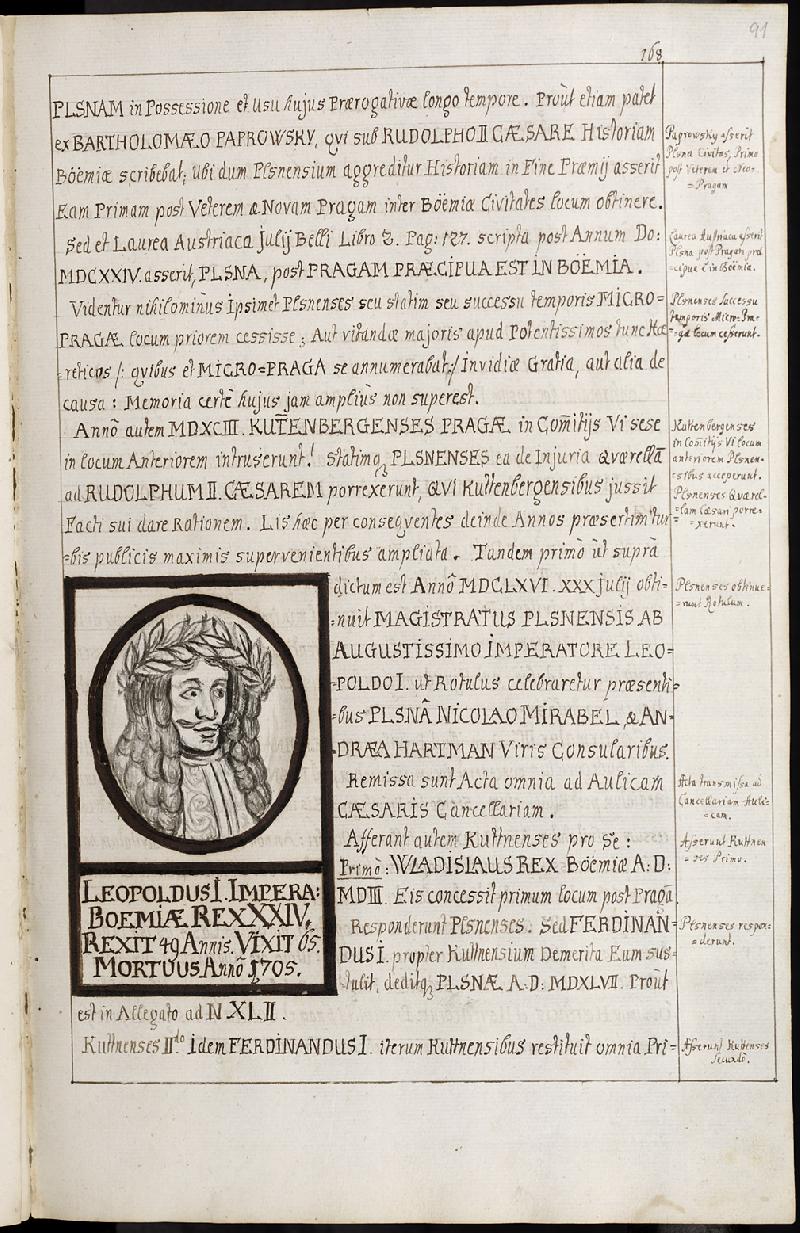 91
168
PLSNAM in Possessione et usu hujus Prærogativæ longo tempore. Proùt etiam patet
ex BARTHOLOMÆO PAPROWSKY, qvi sub RUDOLPHO II CÆSARE Historiam
Böemiæ scribebat; ubi dum Plsnensium aggreditur Historiam in Fine Præmij asserit
Eam Primam post Veterem & Novam Pragam inter Böëmiæ Civitates locum obtinere.
Sed et Laurea Austriaca Julij Belli Libro 3. Pag: 127. scripta post Annum Do:
MDCXXIV. asserit, PLSNA, post PRAGAM PRÆCIPUA EST IN BOËMIA.
Videntur nihilominùs ipsimet Plsnenses seu statim seu successu temporis MICRO=
PRAGÆ locum priorem cessisse; Aut vitandæ majoris apud Potentissimos tunc Hæ
=reticos /: qvibus et MICRO=PRAGA se annumerabat :/ Invidiæ Gratia, aut alia de
causa: Memoria certè hujus jam ampliùs non superest.
Annô autem MDXCIII. KUTENBERGENSES PRAGÆ in Com̃itijs Vi sese
in locum Anteriorem intruserunt! Statimq PLSNENSES ea de Injuria Qværellã
ad RUDOLPHUM II. CÆSAREM porrexerunt, QVI Kuttenbergensibus jussit
Facti sui dare Rationem. Lis hæc per conseqventes deinde Annos præsertim tur
=bis publicis maximis supervenientibus ampliata. Tandem primò ùt suprà
dictum est Annô MDCLXVI. XXX Julij obti=
=nuit MAGISTRATUS PLSNENSIS AB
AUGUSTISSIMO IMPERATORE LEO=
=POLDO I. ut Rotulus celebraretur præsenti=
=bus PLSNÂ NICOLAO MIRABEL, & AN=
DRÆA HARTMAN Viris Consularibus.
Remissa sunt Acta omnia ad Aulicam
CÆSARIS Cancellariam.
Afferant autem Kuttnenses pro Se:
Primò: WLADISLAUS REX Böemiæ A: D:
MDIII. Eis concessit primum locum post Praga
Responderunt Plsnenses. Sed FERDINAN=
DUS I. propter Kuttnensium Demerita Eum sus=
=tulit, deditq PLSNÆ A: D: MDXLVII. Proùt
est in Allegato ad N. XLII.
Kuttnenses II do Idem FERDINANDUS I. iterum Kuttnensibus restituit omnia Pri=
LEOPOLDUS I. IMPERA:
BOEMIÆ REX XXXIV.
REXIT 49 Annis. VIXIT 65.
MORTUUS Annô 1705.
Paprowsky asserit
Plsna Civitas, Primo
post Veterem et Nov.
=Pragam
Laurea Austriaca asserit
Plsna post Pragam præ
=cipua e in Boëmia.
Plsnenses Successu
temporis Micro=Pra=
=gæ locum cesserunt.
Kuttenbergenses
in Comitijs Vi locum
anteriorem Plsnen=
=sibus acceperunt.
Plsnenses Qværel=
=lam Cæsari porre=
=xerunt.
Plsnenses obtinue=
=runt Rotulum.
Acta transmissa ad
Cancellariam Auli=
=cam.
Afferunt Kuttnen
=ses Primo.
Plsnenses respon=
=derunt.
Afferunt Kuttenses
Secundò.